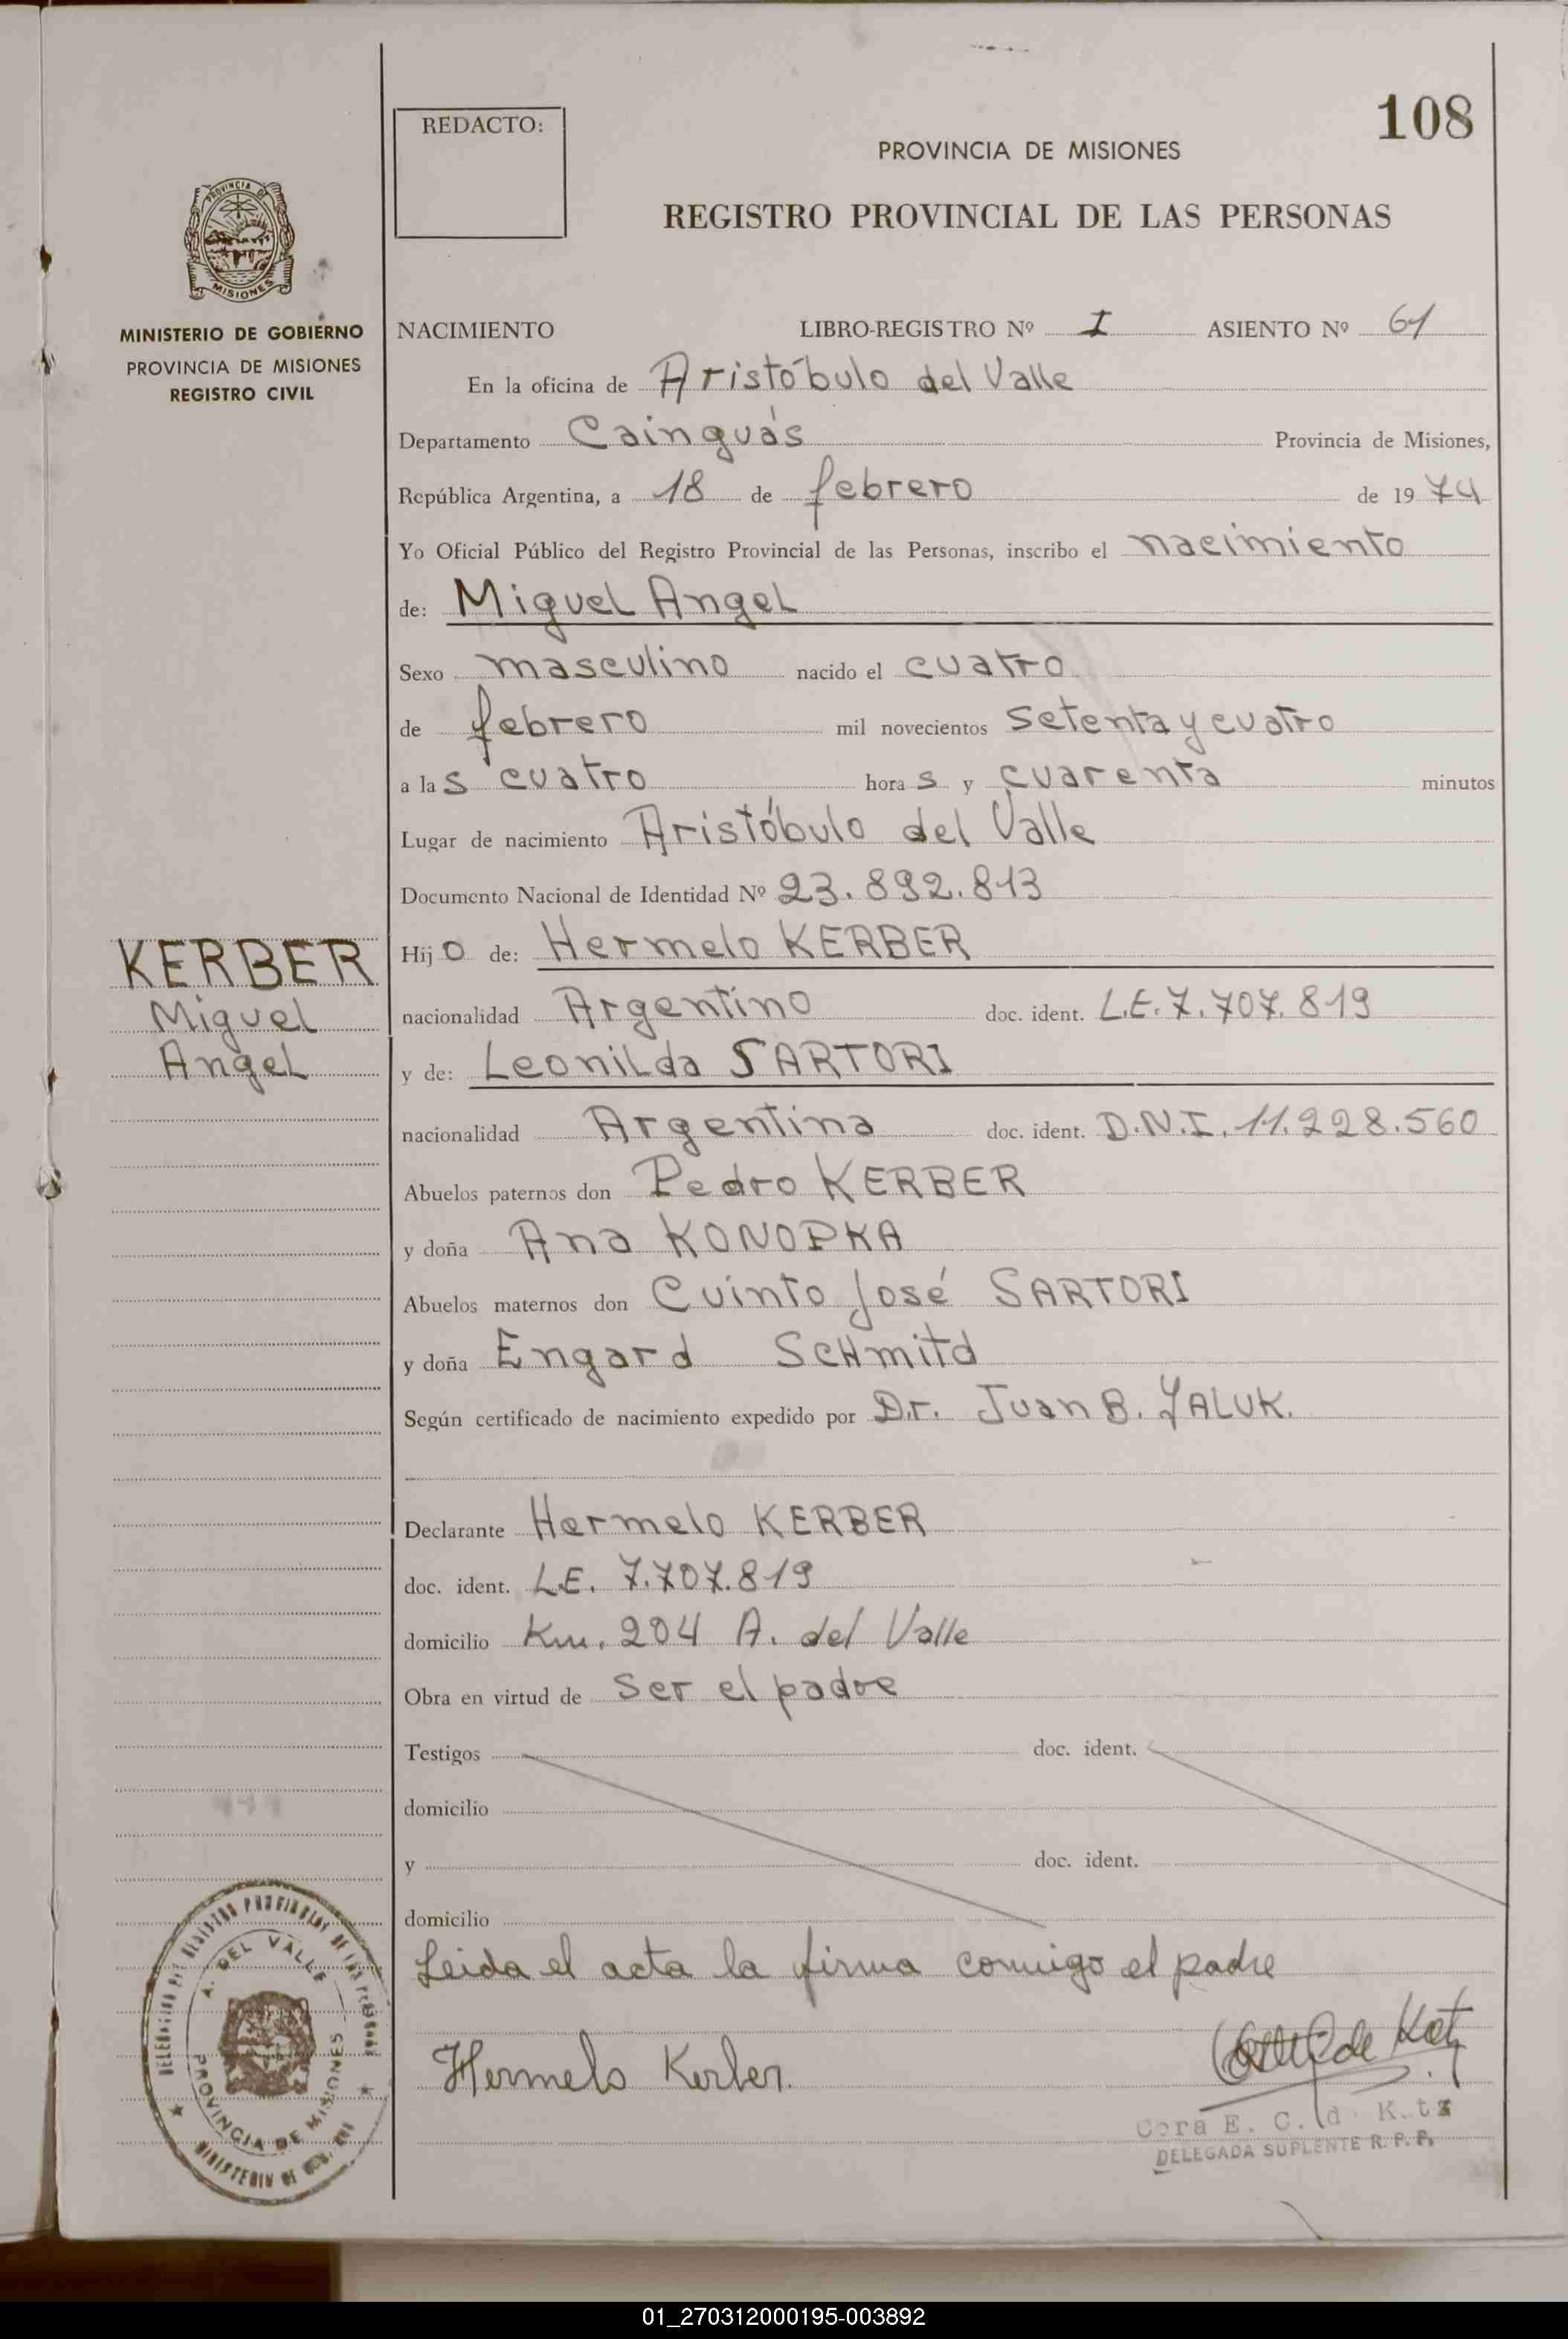 108
REDACTO:
PROVINCIA DE MISIONES
REGISTRO PROVINCIAL DE LAS PERSONAS
PROVINCIA DE
MISIONES
MINISTERIO DE GOBIERNO
PROVINCIA DE MISIONES
REGISTRO CIVIL
NACIMIENTO LIBRO-REGISTRO Nº I ASIENTO Nº 61
En la oficina de Aristóbulo del Valle
Departamento Cainguás Provincia de Misiones,
República Argentina, a 18 de febrero de 1974
Yo Oficial Público del Registro Provincial de las Personas, inscribo el nacimiento
de: Miguel Angel
Sexo masculino nacido el cuatro
de febrero mil novecientos setenta y cuatro
a las cuatro horas y cuarenta minutos
Lugar de nacimiento Aristóbulo del Valle
Documento Nacional de Identidad Nº 23.892.813
KERBER
Miguel
Angel
Hijo de: Hermelo KERBER
nacionalidad Argentino doc. ident. L.E. 7.707.819
y de: Leonilda SARTORI
nacionalidad Argentina doc. ident. D.N.I. 11.228.560
Abuelos paternos don Pedro KERBER
y doña Ana KONOPKA
Abuelos maternos don Cuinto José SARTORI
y doña Engard SCHmitd
Según certificado de nacimiento expedido por Dr. Juan B. YALUK.
Declarante Hermelo KERBER
doc. ident. L.E. 7.707.819
domicilio Km. 204 A. del Valle
Obra en virtud de ser el padre
Testigos doc. ident.
domicilio
y doc. ident.
domicilio
Leida el acta la firma conmigo el padre
Hermelo Kerber.
de Katz
Cora E. C. d K.tz
DELEGADA SUPLENTE R. P. P.
DELEGACION DEL REGISTRO PROVINCIAL DE LAS PERSONAS
A. DEL VALLE
PROVINCIA DE MISIONES
MINISTERIO DE GOB.
01_270312000195-003892